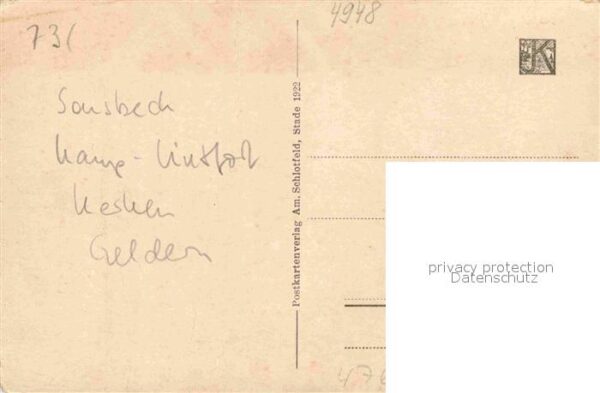 73(
4948
K
Sonsbeck
Kamp-Lintfort
Geldern
Postkartenverlag Am. Schlotfeld, Stade 1922
privacy protection
Datenschutz
476